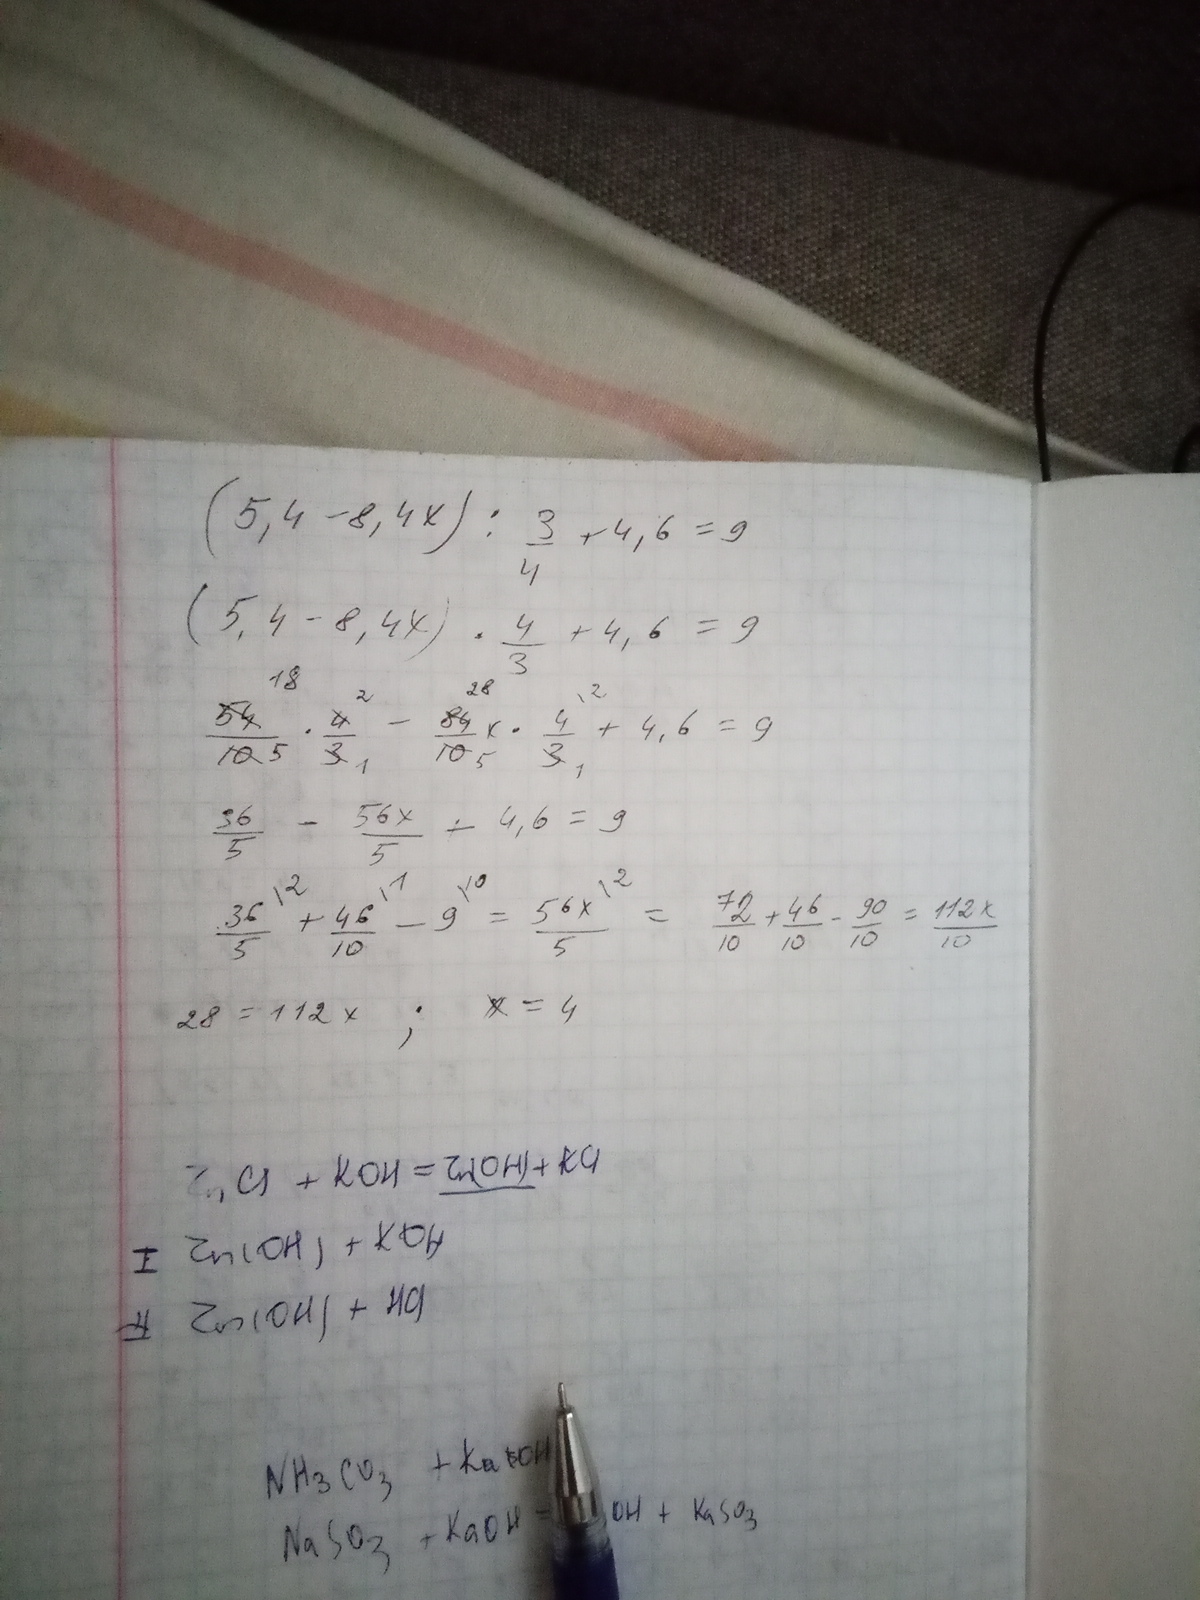 (5,4 - 8,4x) : 3/4 + 4,6 = 9
(5,4 - 8,4x) · 4/3 + 4,6 = 9
54/10 18 5 · 4/3 2 1 - 84/10 28 5 x · 4/3 2 1 + 4,6 = 9
36/5 - 56x/5 + 4,6 = 9
36/5 \2 + 46/10 \1 - 9 \10 = 56x/5 \2 = 72/10 + 46/10 - 90/10 = 112x/10
28 = 112x ; x = 4
Zn Cl + KOH = Zn(OH) + KCl
I Zn(OH) + KOH
II Zn(OH) + HCl
NH3CO3 + KaOH
NaSO3 + KaOH = OH + KaSO3